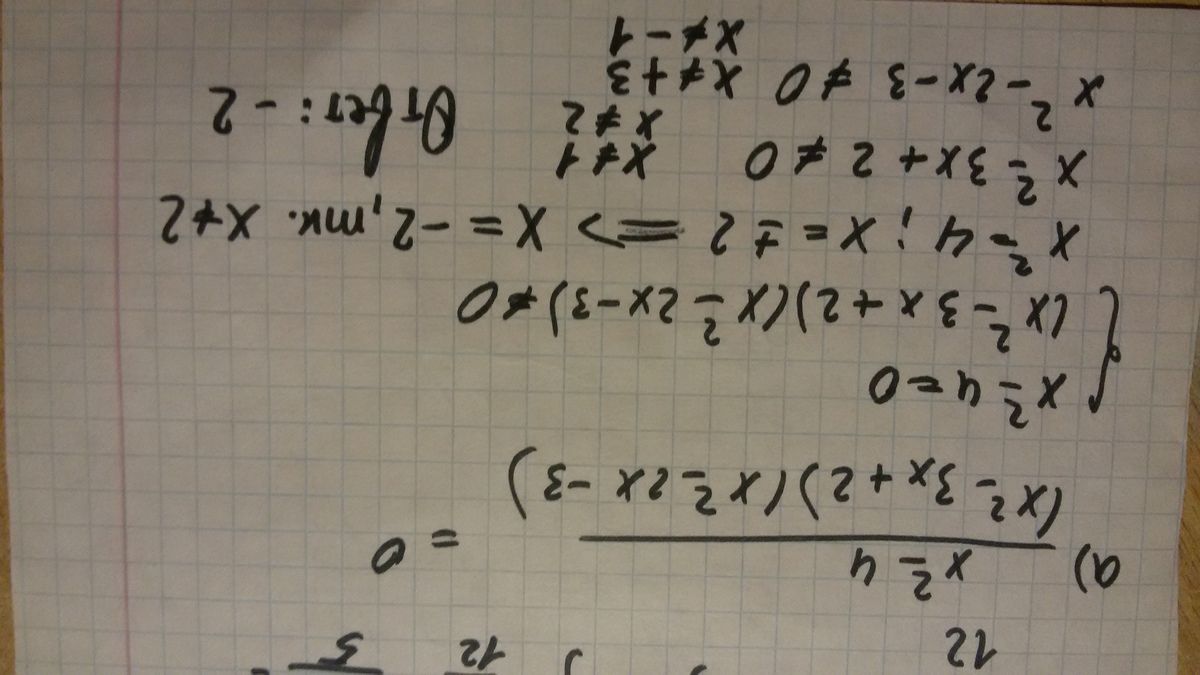 12 ) 12 5
а) x² - 4
(x² - 3x + 2)(x² - 2x - 3) = 0
x² - 4 = 0
(x² - 3x + 2)(x² - 2x - 3) ≠ 0
x² = 4; x = ± 2 => x = -2, т.к. x ≠ 2
x² - 3x + 2 ≠ 0 x ≠ 1
x ≠ 2
x² - 2x - 3 ≠ 0 x ≠ +3
x ≠ -1
Ответ: - 2